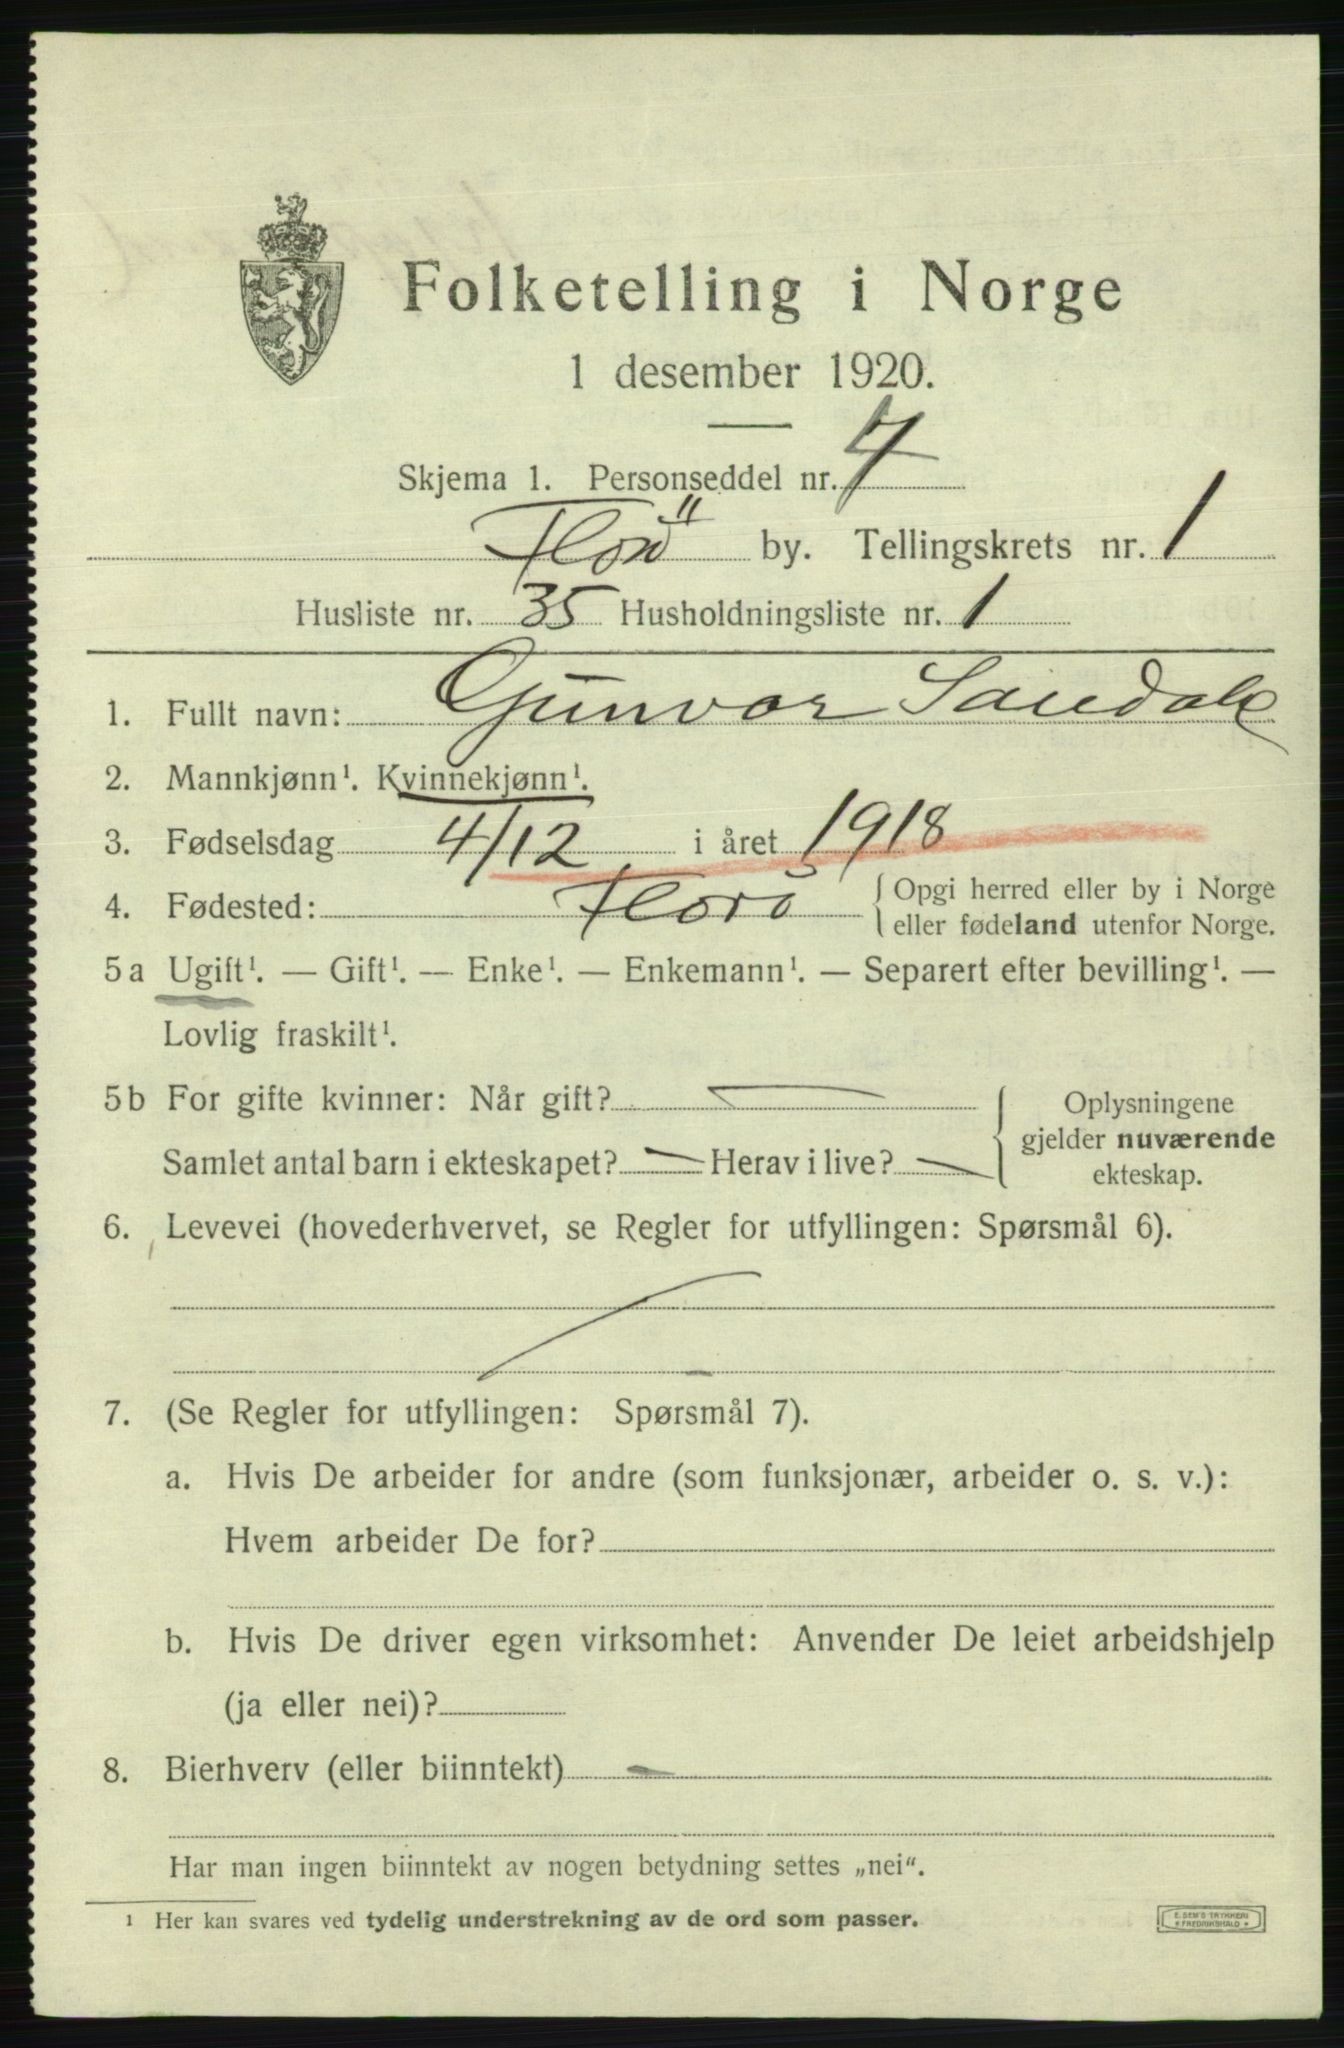 Folketelling i Norge
1 desember 1920.
Skjema 1. Personseddel nr. 7
Florö by. Tellingskrets nr. 1
Husliste nr. 35 Husholdningsliste nr. 1
1. Fullt navn: Gunvor Sandal
2. Mannkjønn¹. Kvinnekjønn¹.
3. Fødselsdag 4/12 i året 1918
4. Fødested: Florö { Opgi herred eller by i Norge
eller fødeland utenfor Norge.
5a Ugift¹. — Gift¹. — Enke¹. — Enkemann¹. — Separert efter bevilling¹. —
Lovlig fraskilt¹.
5b For gifte kvinner: Når gift? — Oplysningene
gjelder nuværende
Samlet antal barn i ekteskapet? — Herav i live? —
ekteskap.
6. Levevei (hovederhvervet, se Regler for utfyllingen: Spørsmål 6).
7. (Se Regler for utfyllingen: Spørsmål 7).
a. Hvis De arbeider for andre (som funksjonær, arbeider o. s. v.):
Hvem arbeider De for?
b. Hvis De driver egen virksomhet: Anvender De leiet arbeidshjelp
(ja eller nei)?
8. Bierhverv (eller biinntekt) —
Har man ingen biinntekt av nogen betydning settes „nei“.
¹ Her kan svares ved tydelig understrekning av de ord som passer.
E. SEM'S TRYKKERI
* FREDRIKSHALD *